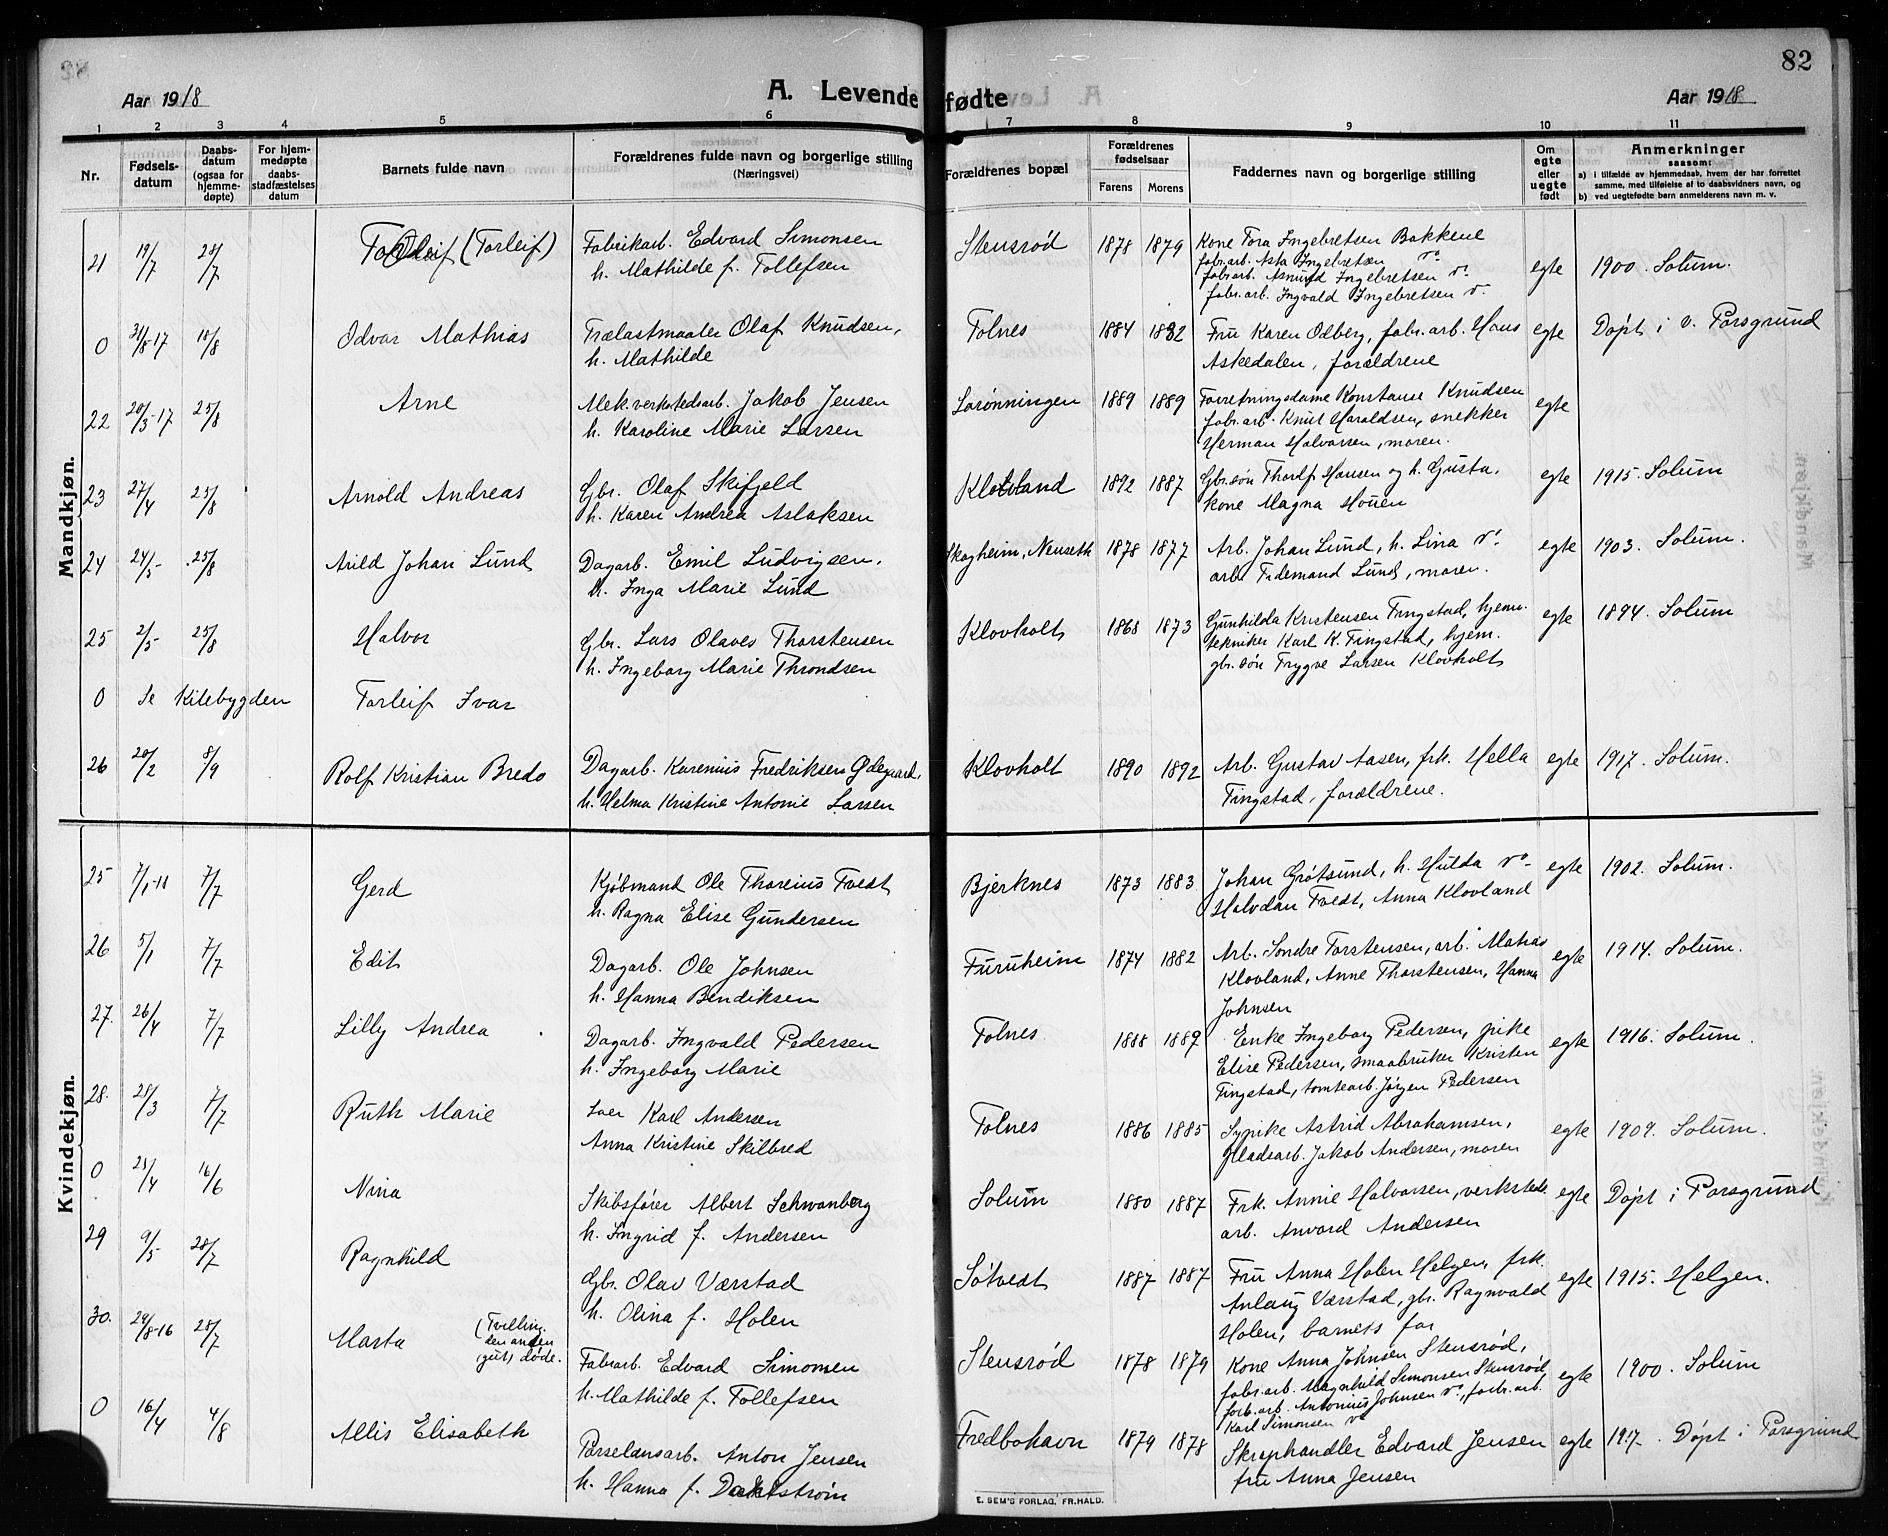 82
Aar 1918
A. Levende fødte
Aar 1918
1 2 3 4 5 6 7 8 9 10 11
Nr.
Fødsels-
datum
Daabs-
datum
(ogsaa for
hjemme-
døpte)
For hjem-
medøpte
daabs-
stadfæstelses
datum
Barnets fulde navn
Forældrenes fulde navn og borgerlige stilling
(Næringsvei)
Forældrenes bopæl
Forældrenes
fødselsaar
Farens Morens
Faddernes navn og borgerlige stilling
Om
egte
eller
uegte
født
Anmerkninger
saasom:
a) i tilfælde av hjemmedaab, hvem der har forrettet
samme, med tilføielse af to daabsvidners navn, og
b) ved uegtefødte børn anmelderens navn m. v.
Mandkjøn.
21 19/7 28/7 (Torleif) Fabrikarb. Edvard Simonsen
h. Mathilde f. Tollefsen
Stensrød 1878 1879 Kone Tora Ingebretsen Bakkene
fabr.arb. Asta Ingebretsen do
fabr.arb. Asmund Ingebretsen do
fabr.arb. Ingvald Ingebretsen do
egte 1900. Solum.
0 31/8-17 18/8 Odvar Mathias Trælastmaaler Olaf Knudsen,
h. Mathilde
Folnes 1884 1882 Fru Karen Odberg, fabr.arb. Hans
Askedalen, forældrene
egte Døpt i V. Porsgrund
22 20/3-17 25/8 Arne Mek.verkstedsarb. Jakob Jensen
h. Karoline Marie Larsen
Lorønningen 1889 1889 Forretningsdame Konstanse Knudsen
fabr.arb. Knut Haraldsen, snekker
Herman Halvorsen, moren.
egte
23 27/4 25/8 Arnold Andreas Gbr. Olaf Skifjeld
h. Karen Andrea Aslaksen
Klovland 1892 1887 Gbr.søn Thorlf Hansen og h. Gusta,
kone Magna Houen
egte 1915. Solum
24 24/5 25/8 Arild Johan Lund Dagarb. Emil Ludvigsen,
h. Inga Marie Lund
Skogheim, Nenseth 1878 1877 Arb. Johan Lund, h. Lina do
arb. Tidemand Lund, moren.
egte 1903. Solum.
25 2/5 25/8 Halvor Gbr. Lars Olaves Thorstensen
h. Ingeborg Marie Throndsen
Klovholt 1868 1873 Gunhilda Kristensen Tingstad, hjem.
tekniker Karl K. Tingstad, hjem.
gbr.søn Trygve Larsen Klovholt
egte 1894. Solum
0 Se Kilebygden Torleif Ivar
26 20/2 8/9 Rolf Kristian Bredo Dagarb. Karenius Fredriksen Ødegaard,
h. Helma Kristine Antonie Larsen
Klovholt 1890 1892 Arb. Gustav Aasen, frk. Hella
Tingstad, forældrene.
egte 1917. Solum.
Kvindekjøn.
25 7/1-18 7/7 Gerd Kjøbmand Ole Thorenius Tvedt
h. Ragna Elise Gundersen
Bjerknes 1873 1883 Johan Grøtsund, h. Hulda do
Halvdan Tvedt, Anna Klovland
egte 1902. Solum.
26 5/1 7/7 Edit Dagarb. Ole Johnsen
h. Hanna Bendiksen
Furuheim 1874 1882 Arb. Sondre Torstensen, arb. Matias
Klovland, Anne Thorstensen, Hanna
Johnsen
egte 1914. Solum.
27. 26/4 7/7 Lilly Andrea Dagarb. Ingvald Pedersen
h. Ingeborg Marie
Folnes 1888 1889 Enke Ingeborg Pedersen, pike
Elise Pedersen, smaabruker Kristen
Tingstad, tomtearb. Jørgen Pedersen
egte 1916. Solum.
28. 25/3 7/7 Ruth Marie Karl Andersen
Anna Kristine Skilbred
Folnes 1886 1885 Sypike Astrid Abrahamsen,
pladsarb. Jakob Andersen, moren
egte 1909. Solum.
0 25/4 16/6 Nina Skibsfører Albert Schwanberg
h. Ingrid f. Andersen
Solum 1880 1887 Frk. Annie Halvorsen, verksteds
arb. Anvard Andersen
egte Døpt i Porsgrund
29 9/5 28/7 Ragnhild Gbr. Olav Værstad
h. Olina f. Holen
Søtvedt 1887 1887 Fru Anna Holen Helgen, frk.
Anlaug Værstad, gbr. Ragnvald
Holen, barnets far
egte 1915. Helgen.
30. 24/8-16 28/7 Marta (Tvilling.
den anden
gut, døde. Fabr.arb. Edvard Simonsen
h. Mathilde f. Tollefsen
Stensrød 1878 1879 Kone Anna Johnsen Stensrød,
fabr.arb. Magnhild Simonsen Stensrød,
fabr.arb. Antonius Johnsen do, fabr.arb.
Karl Simonsen do
egte 1900. Solum
0 16/4 4/8 Allis Elisabeth Porselænsarb. Anton Jensen
h. Hanna f.
Fredbohavn 1879 1878 Skraphandler Edvard Jensen
fru Anna Jensen
egte 1917. Døpt i Porsgrund
E. SEM'S FORLAG, FR.HALD.